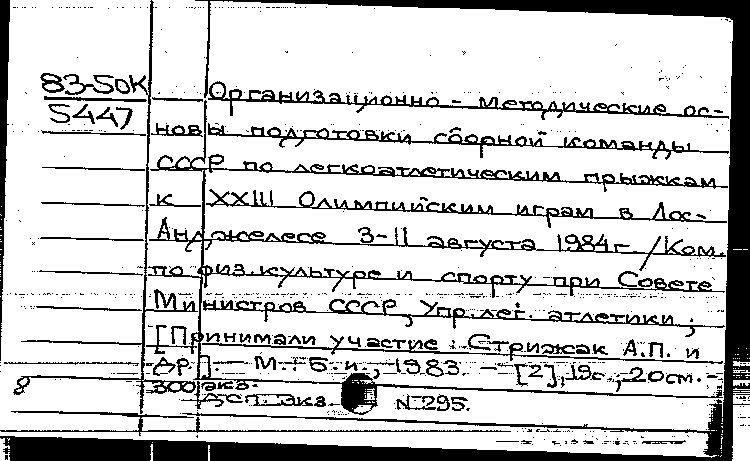 83-50К
5447
Организационно-методические ос-
новы подготовки сборной команды
СССР по легкоатлетическим прыжкам
к XXIII Олимпийским играм в Лос-
Анджелесе 3-11 августа 1984г /Ком.
по физ.культуре и спорту при Совете
Министров СССР, Упр.лег. атлетики;
[Принимали участие: Стрижак А.П. и
др.].- М.: Б.и., 1983. - [2], 19с.; 20см. -
300 экз.
ДСП. экз. N 295.
8